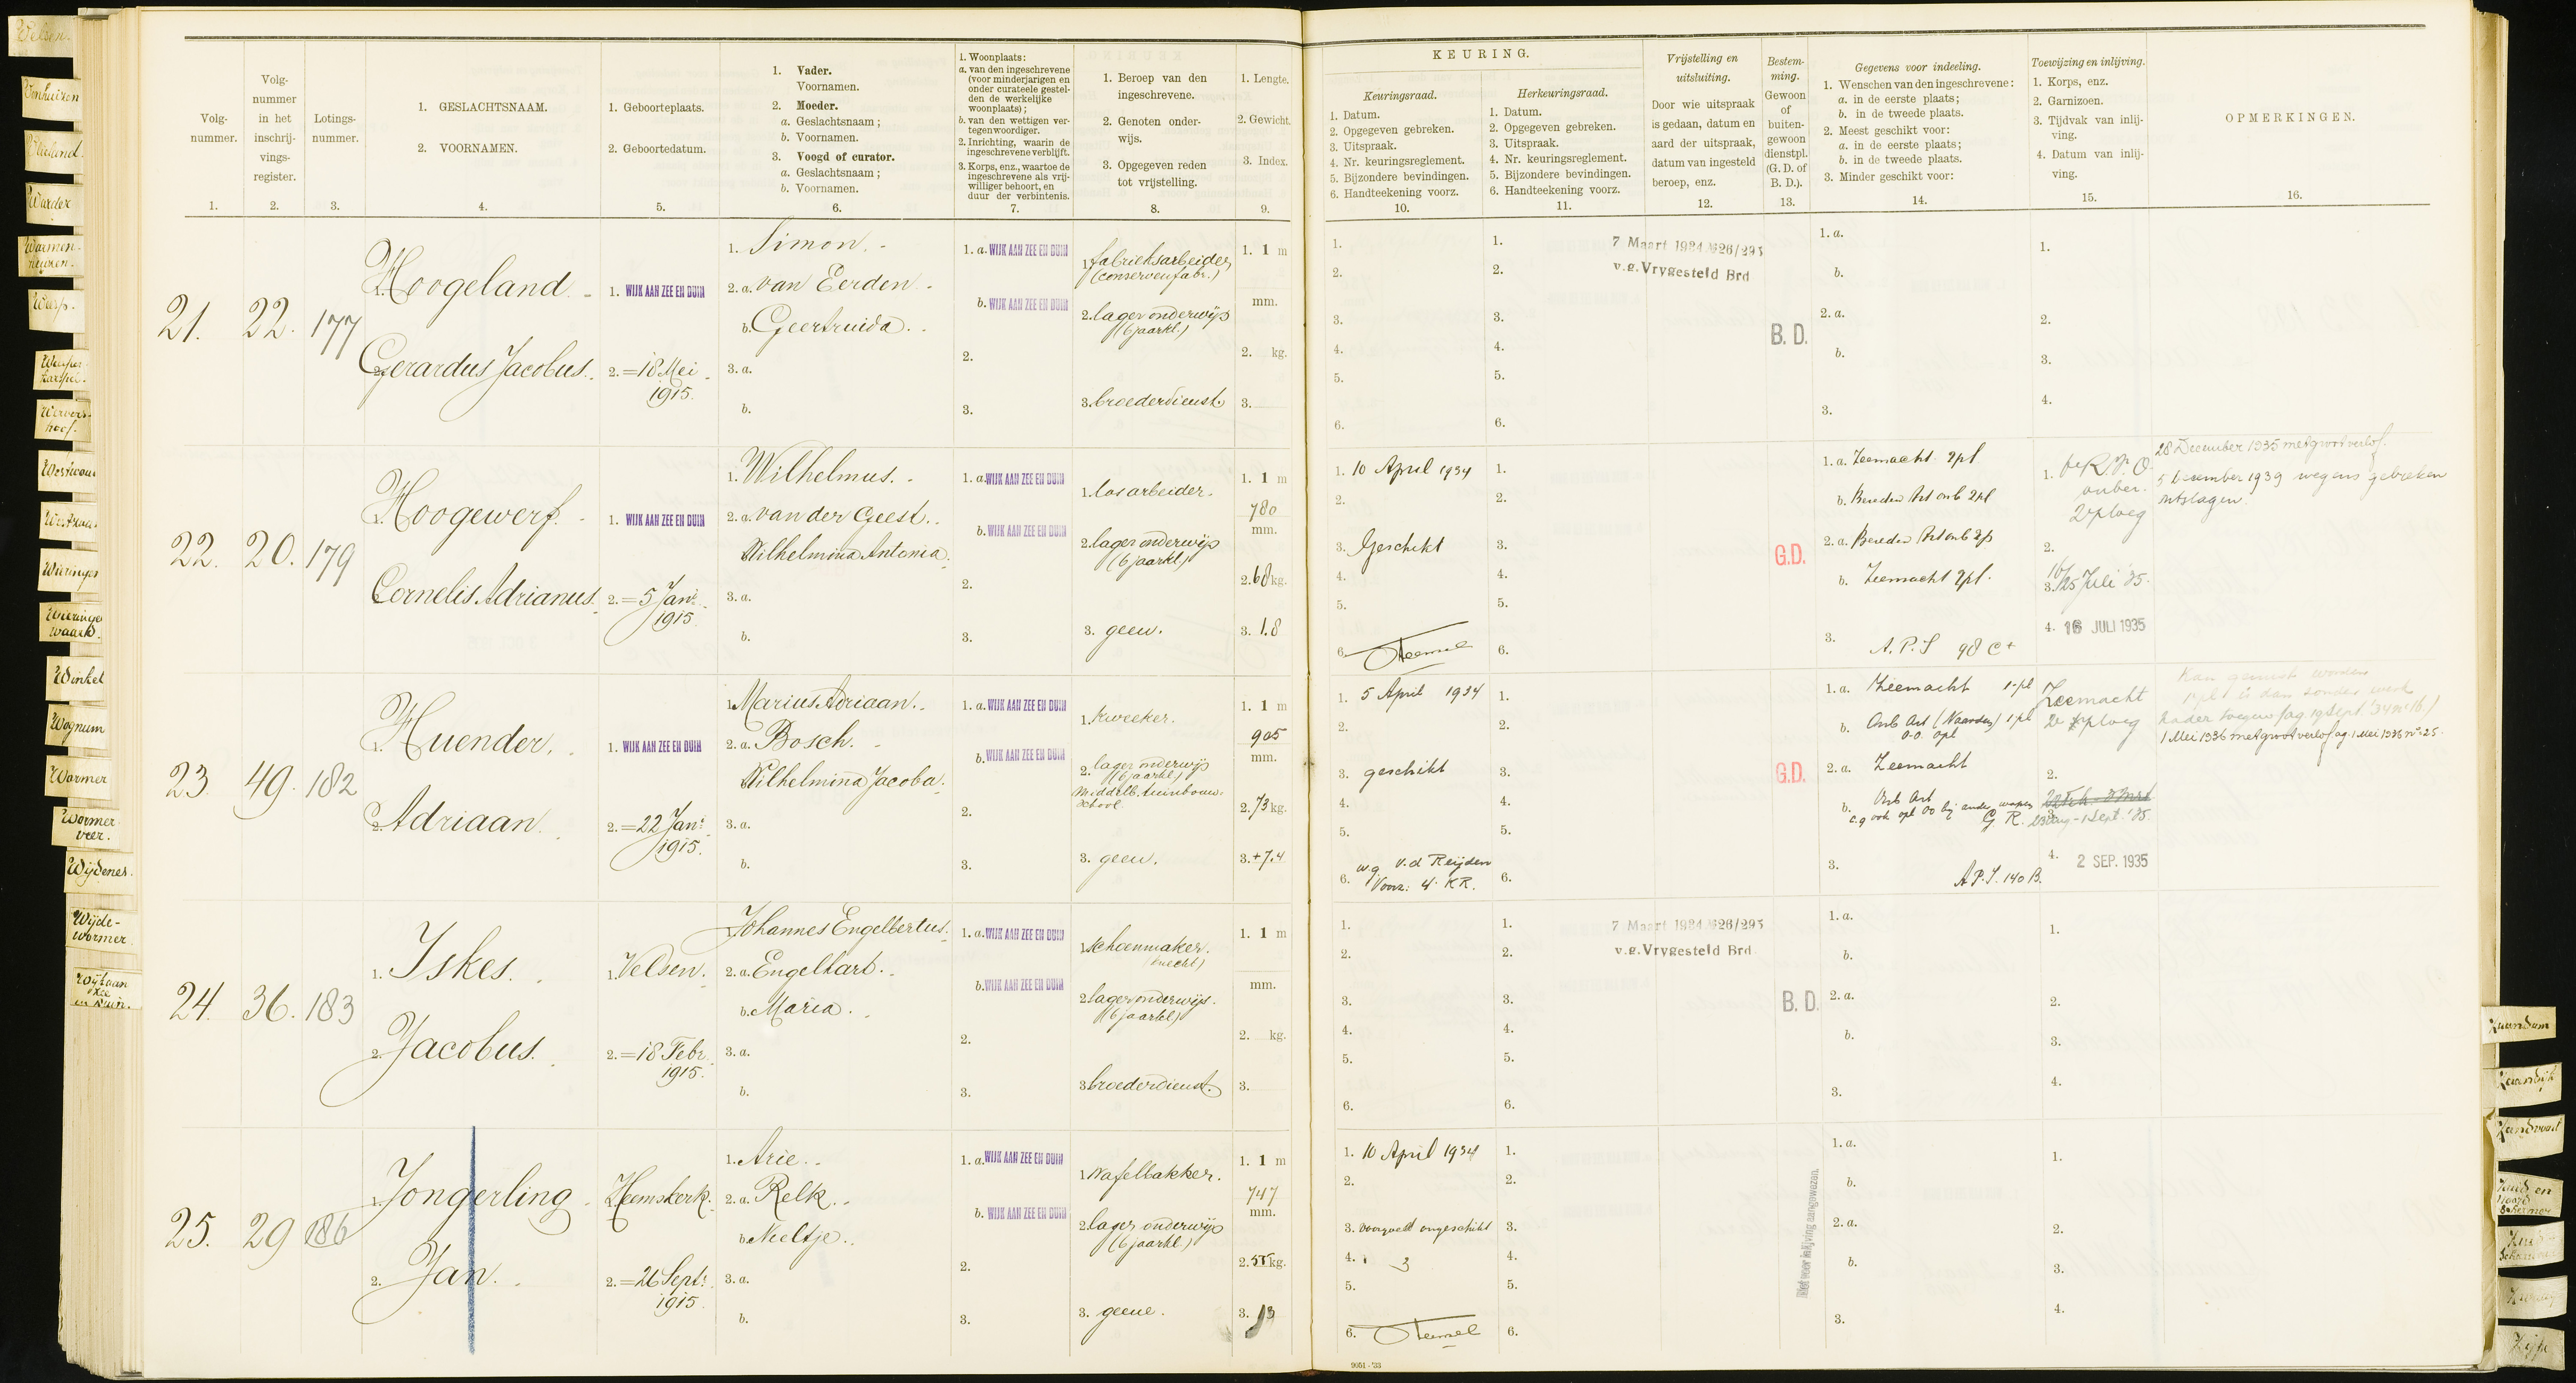 Velsen.
Venhuizen
Vlieland.
Warder
Warmenhuizen.
Weesp.
Weesperkarspel.
Wervershoof.
Westwoud
Wieringen
Wieringerwaard.
Winkel
Wognum
Wormer
Wormerveer.
Wijdenes.
Wijdewormer.
Wijk aan Zee en Duin.
Volgnummer.
1.
Volgnummer in het inschrijvingsregister.
2.
Lotingsnummer.
3.
1. GESLACHTSNAAM.
2. VOORNAMEN.
4.
1. Geboorteplaats.
2. Geboortedatum.
5.
1. Vader.
Voornamen.
2. Moeder.
a. Geslachtsnaam;
b. Voornamen.
3. Voogd of curator.
a. Geslachtsnaam;
b. Voornamen.
6.
1. Woonplaats:
a. van den ingeschrevene
(voor minderjarigen en
onder curateele gestel-
den de werkelijke
woonplaats);
b. van den wettigen ver-
tegenwoordiger.
2. Inrichting, waarin de
ingeschrevene verblijft.
3. Korps, enz., waartoe de
ingeschrevene als vrij-
williger behoort, en
duur der verbintenis.
7.
1. Beroep van den
ingeschrevene.
2. Genoten onder-
wijs.
3. Opgegeven reden
tot vrijstelling.
8.
1. Lengte.
2. Gewicht.
3. Index.
9.
KEURING.
Keuringsraad.
1. Datum.
2. Opgegeven gebreken.
3. Uitspraak.
4. Nr. keuringsreglement.
5. Bijzondere bevindingen.
6. Handteekening voorz.
10.
Herkeuringsraad.
1. Datum.
2. Opgegeven gebreken.
3. Uitspraak.
4. Nr. keuringsreglement.
5. Bijzondere bevindingen.
6. Handteekening voorz.
11.
Vrijstelling en
uitsluiting.
Door wie uitspraak
is gedaan, datum en
aard der uitspraak,
datum van ingesteld
beroep, enz.
12.
Bestem-
ming.
Gewoon
of
buiten-
gewoon
dienstpl.
(G. D. of
B. D.).
13.
Gegevens voor indeeling.
1. Wenschen van den ingeschrevene:
a. in de eerste plaats;
b. in de tweede plaats.
2. Meest geschikt voor:
a. in de eerste plaats;
b. in de tweede plaats.
3. Minder geschikt voor:
14.
Toewijzing en inlijving.
1. Korps, enz.
2. Garnizoen.
3. Tijdvak van inlij-
ving.
4. Datum van inlij-
ving.
15.
OPMERKINGEN.
16.
21. 22. 177
1. Hoogeland.
2. Gerardus Jacobus.
1. WIJK AAN ZEE EN DUIN
2. = 18 Mei
1915.
1. Simon.
2. a. van Eerden.
b. Geertruida.
3. a.
b.
1. a. WIJK AAN ZEE EN DUIN
b. WIJK AAN ZEE EN DUIN
2.
3.
1. fabrieksarbeider
(conservenfabr.)
2. lager onderwijs
(6 jaarkl.)
3. broederdienst.
1. 1 m
mm.
2. kg.
3.
1.
2.
3.
4.
5.
6.
1.
2.
3.
4.
5.
6.
7 Maart 1934 №26/293
v.g. Vrygesteld Brd
B. D.
1. a.
b.
2. a.
b.
3.
1.
2.
3.
4.
22. 20. 179
1. Hoogewerf.
2. Cornelis Adrianus.
1. WIJK AAN ZEE EN DUIN
2. = 5 Jan.
1915.
1. Wilhelmus.
2. a. van der Geest.
Wilhelmina Antonia.
3. a.
b.
1. a. WIJK AAN ZEE EN DUIN
b. WIJK AAN ZEE EN DUIN
2.
3.
1. los arbeider.
2. lager onderwijs
(6 jaarkl.)
3. geen.
1. 1 m
780
mm.
2. 68 kg.
3. 1.8
1. 10 April 1934
2.
3. Geschikt
4.
5.
6.
1.
2.
3.
4.
5.
6.
G.D.
1. a. Zeemacht 2pl
b. Bereden Art onb 2pl
2. a. Bereden Art onb 2p
b. Zeemacht 2pl.
3. A.P.S 98 C+
1.
onber.
2e ploeg
2.
3. 16/25 Juli '35.
4. 16 JULI 1935
28 December 1935 met groot verlof.
5 December 1939 wegens gebreken
ontslagen.
23. 49. 182
1. Huender.
2. Adriaan.
1. WIJK AAN ZEE EN DUIN
2. = 22 Jan.
1915.
1. Marius Adriaan.
2. a. Bosch.
Wilhelmina Jacoba.
3. a.
b.
1. a. WIJK AAN ZEE EN DUIN
b. WIJK AAN ZEE EN DUIN
2.
3.
1. kweeker.
2. lager onderwijs
(6 jaarkl.)
Middelb. tuinbouw-
school.
3. geen.
1. 1 m
905
mm.
2. 73 kg.
3. +7.4
1. 5 April 1934
2.
3. geschikt
4.
5.
6. w.g. v.d Reijden
Voorz: 4e KR.
1.
2.
3.
4.
5.
6.
G.D.
1. a. Zeemacht 1e pl
b. Onb Art (Naarden) 1 pl
o.o. opl
2. a. Zeemacht
b. Onb Art
c.q ook opl oo bij ander wapen
G. R.
3. A.P.S. 140 B.
Zeemacht
2e ploeg
2.
3. 23 Aug - 1 Sept. '35.
4. 2 SEP. 1935
Kan gemist worden
1 Mei 1936 met groot verlof ag. 1 Mei 1936 no 25.
24. 36. 183
1. Iskes.
2. Jacobus.
1. Velsen.
2. = 18 Febr.
1915.
Johannes Engelbertus.
2. a. Engelhart.
b. Maria.
3. a.
b.
1. a. WIJK AAN ZEE EN DUIN
b. WIJK AAN ZEE EN DUIN
2.
3.
1. schoenmaker.
(knecht)
2. lager onderwijs.
(6 jaarkl.)
3. broederdienst.
1. 1 m
mm.
2. kg.
3.
1.
2.
3.
4.
5.
6.
1.
2.
3.
4.
5.
6.
7 Maart 1934 №26/293
v.g. Vrygesteld Brd
B. D.
1. a.
b.
2. a.
b.
3.
1.
2.
3.
4.
25. 29 186
1. Jongerling.
2. Jan.
1. Heemskerk.
2. = 26 Sept.
1915.
1. Arie.
2. a. Relk.
b. Neeltje.
3. a.
b.
1. a. WIJK AAN ZEE EN DUIN
b. WIJK AAN ZEE EN DUIN
2.
3.
1. wafelbakker.
2. lager onderwijs
(6 jaarkl.)
3. geene.
1. 1 m
747
mm.
2. 55 kg.
3. 13
1. 10 April 1934
2.
3. voorgoed ongeschikt
4. 3
5.
6.
1.
2.
3.
4.
5.
6.
Niet voor inlijving aangewezen.
1. a.
b.
2. a.
b.
3.
1.
2.
3.
4.
9051 - '33
Zaandam
Zaandijk
Zandvoort